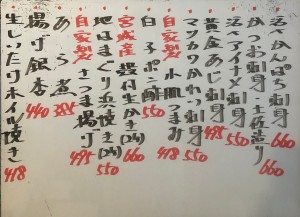 活〆かんぱち刺身 660
かつお刺身・土佐造り 660
活〆アイナメ刺身 550
黄金あじ刺身 495
マツカワかれい刺身 660
自家製 小肌つまみ 418
白子ポン酢 550
宮城産 殻付生かき(2ヶ) 660
地はまぐり浜焼き(2ヶ) 550
自家製 さつま揚げ 495
あら煮 385
揚げ銀杏 440
生しいたけホイル焼き 418